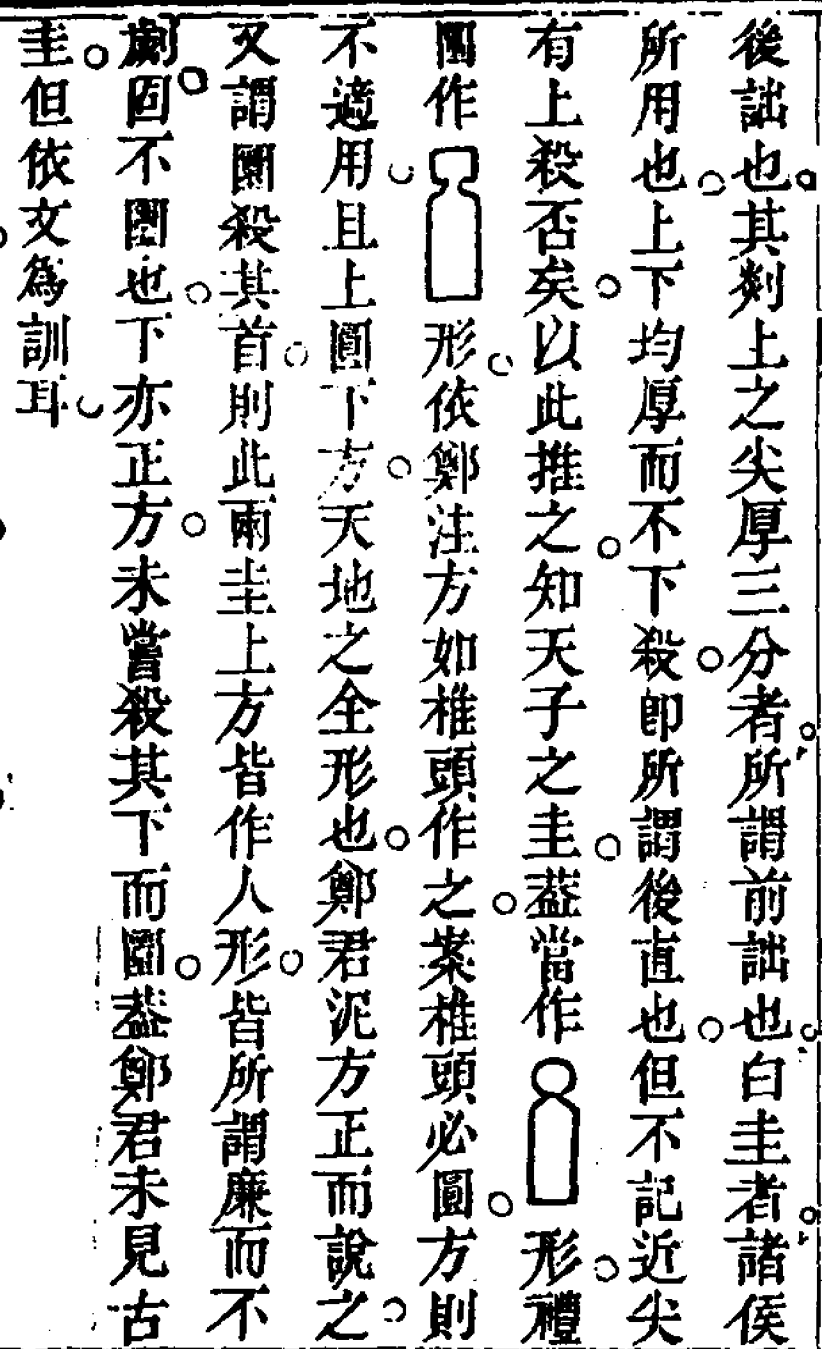 後詘也其剡上之尖厚三分者所謂前詘也白圭者諸侯
所用也上下均厚而不下殺卽所謂後直也但不記近尖
有上殺否矣以此推之知天子之圭葢當作形禮
圖作形依鄭注方如椎頭作之案椎頭必圓方則
不適用且上圓下方天地之全形也鄭君泥方正而說之
又謂圜殺其首則此兩圭上方皆作人形皆所謂廉而不
劌固不圜也下亦正方未嘗殺其下而圜葢鄭君未見古
圭但依文爲訓耳